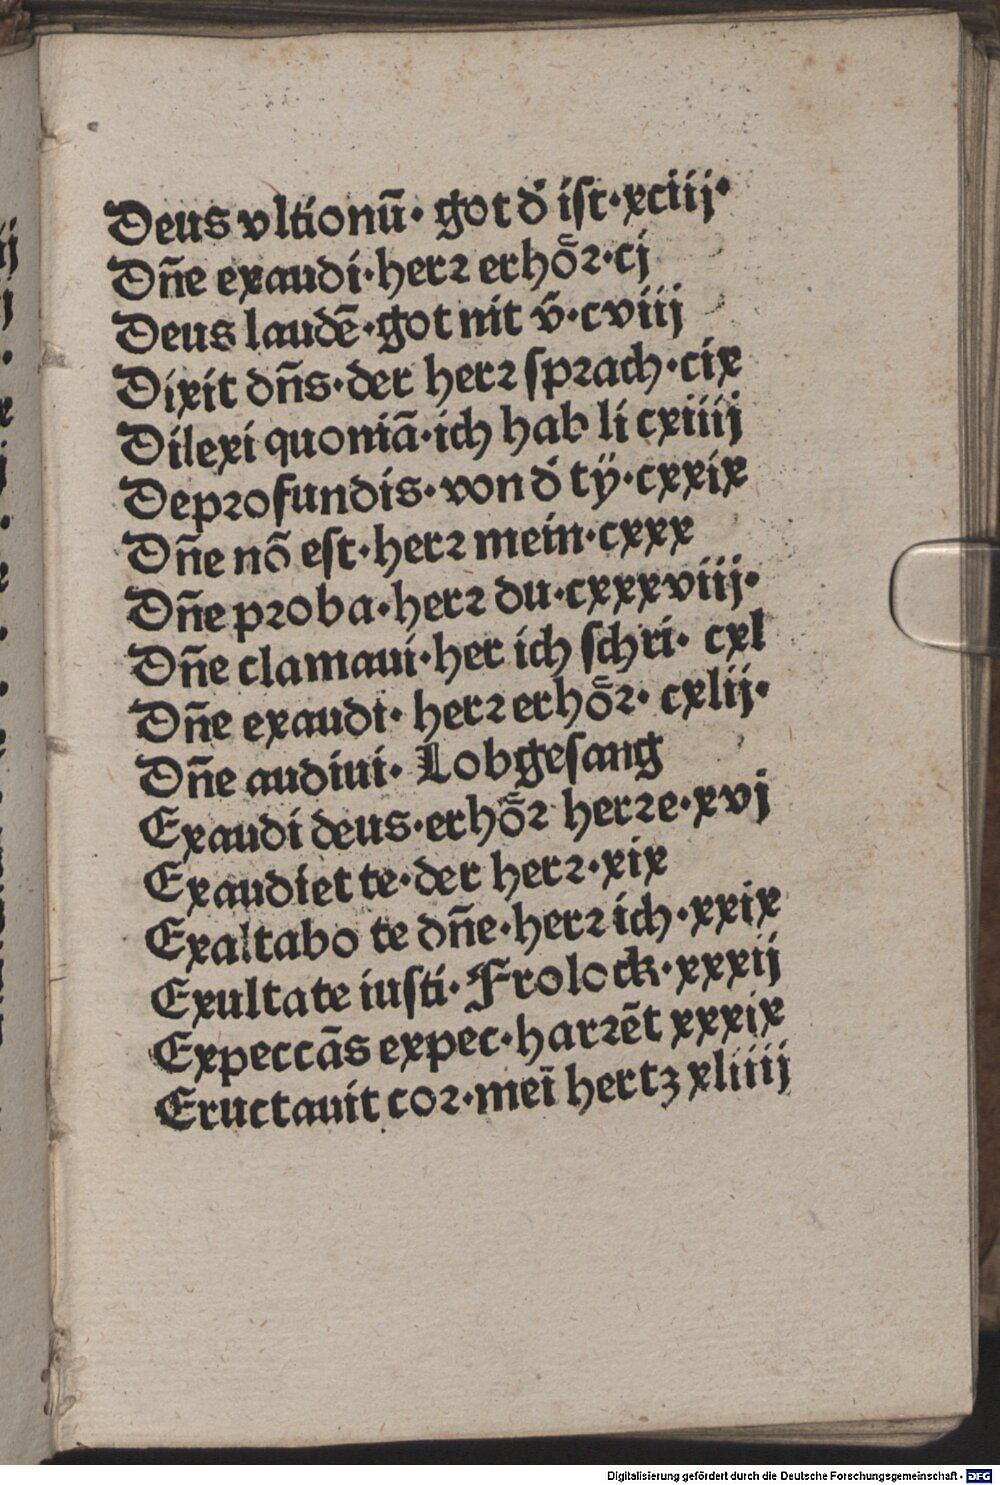 Deus vltionū· got d̄ iſt·xciij·
Dn̄e exaudi·herꝛ erhoͤꝛ·cj
Deus laudē·got nit v̄·cviij
Dixit dn̄s·der herꝛ ſpꝛach·cix
Dilexi quoniā·ich hab li cxiiij
Depꝛofundis·von d̄ tÿ·cxxix
Dn̄e nō eſt·herꝛ mein·cxxx
Dn̄e pꝛoba·herꝛ du·cxxxviij·
Dn̄e clamaui·her ich ſchri· cxl
Dn̄e exaudi· herꝛ erhoͤꝛ· cxlij·
Dn̄e audiui· Lobgeſang
Exaudi deus·erhoͤꝛ herꝛe·xvj
Exaudiet te·der herꝛ·xix
Exaltabo te dn̄e·herꝛ ich·xxix
Exultate iuſti·Frolock·xxxij
Expeccās expec·harꝛēt xxxix
Eructauit coꝛ·meī hertz xliiij
Digitalisierung gefördert durch die Deutsche Forschungsgemeinschaft · DFG